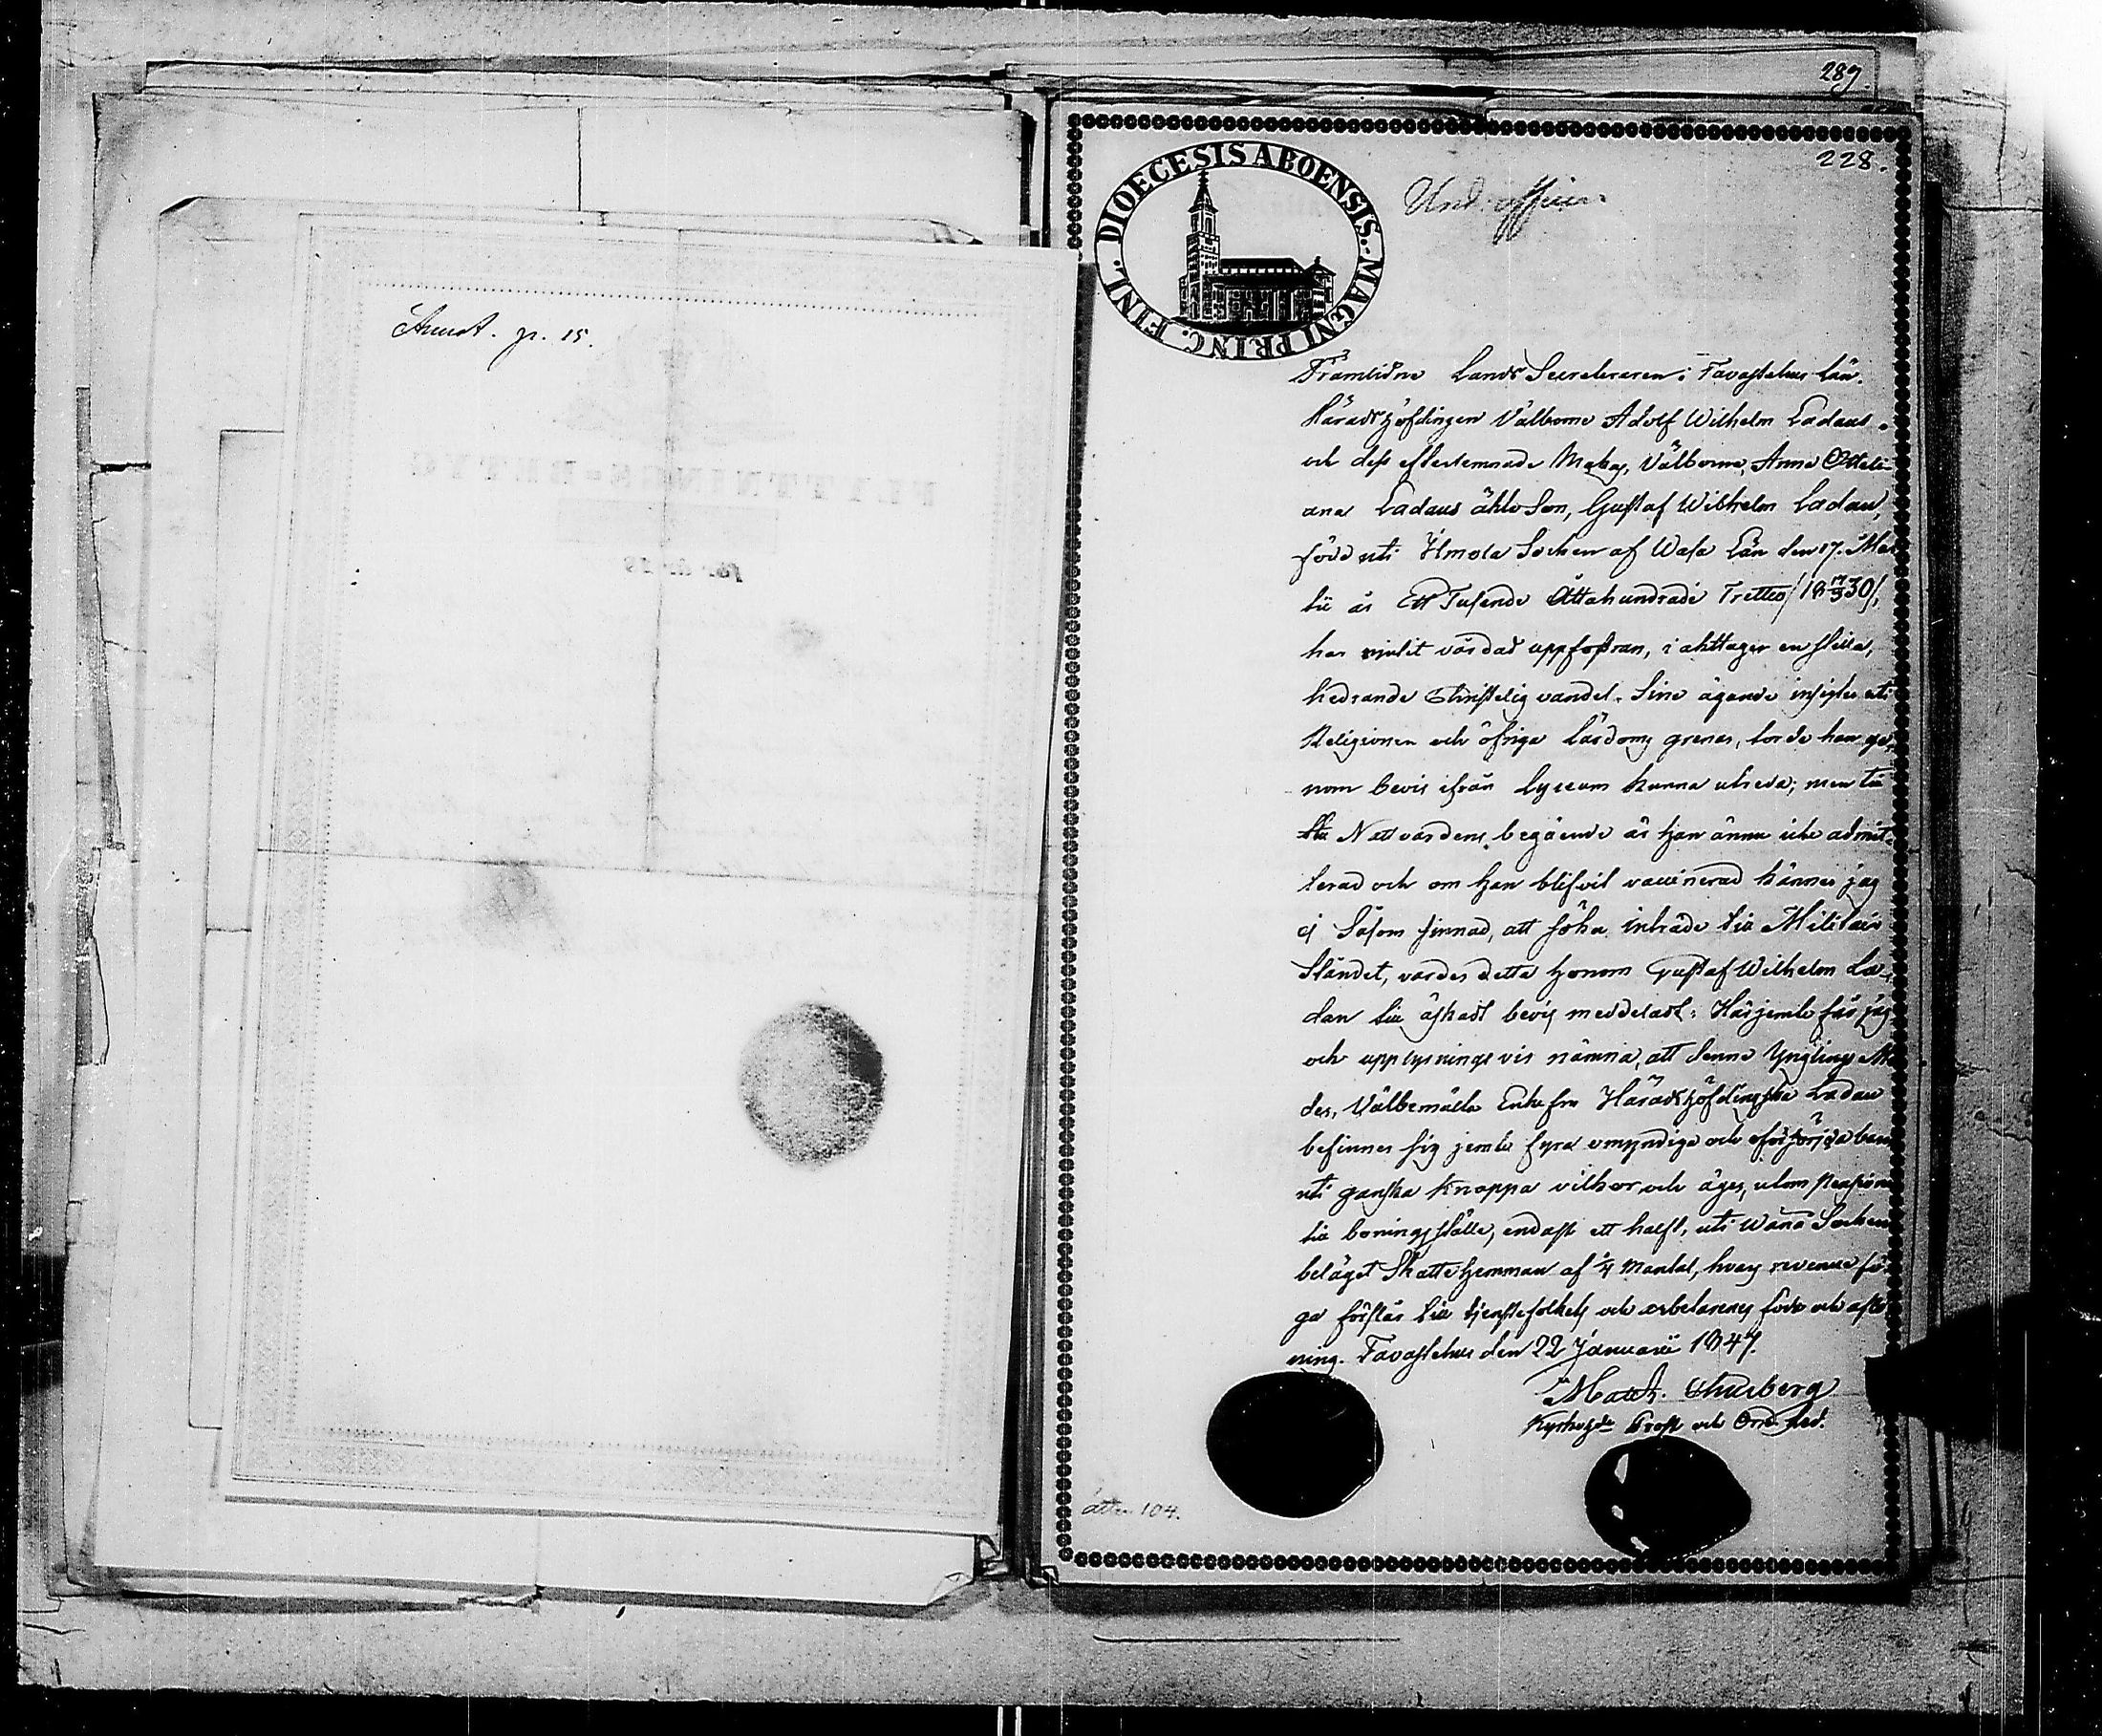 289.
228.
DIOECESIS ABOENSIS. MAGNI PRINC. FINL.
Und. officer.
Annot. p. 15.
FLYTTNINGS-BETYG
Framlidne Lands Secreteraren i Tavastehus Län.
Häradshöfdingen Välborne Adolf Wilhelm Ladaus
och dess efterlemnade Maka, Välborna Anna Ottili-
ana Ladaus äkta Son, Gustaf Wilhelm Ladau,
född uti Ilmola Socken af Wasa Län den 17. Mar-
tii år Ett Tusende Åttahundrade Trettio /18 17/3 30/,
har njutit vårdad uppfostran, i akttager en stilla,
hedrande Christelig vandel. Sine ägande insigter uti
Religionen och öfriga Lärdoms grenar, torde han ge-
nom bevis ifrån Lyceum kunna utreda; men till
Nattvardens begående är han ännu icke admit-
terad och om han blifvit vaccinerad känner jag
ej Såsom sinnad, att söka inträde till Militair
Ståndet, varder detta honom Gustaf Wilhelm La-
dau till äskadt bevis meddeladt: Härjemte får jag
och upplysnings vis nämna, att denne Ynglings Mo-
der, Välbemälta Enkefru Häradshöfdingskan Ladau
befinner sig jemte fyra omyndiga och oförsörjda barn
uti ganska knappa vilkor och äger, utom Pension
till boningsställe, endast ett halft, uti Wånå Socken
beläget Skatte Hemman af 1/4 Mantal, hvars revenue fö-
ga förslår till tjenstefolkets och arbetarenes födo och aflö-
ning. Tavastehus den 22 Januarii 1847.
Kyrkohde Prost och Ord. Led.
104.